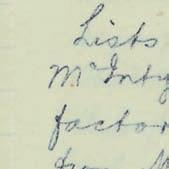 Lists
McInty
factor